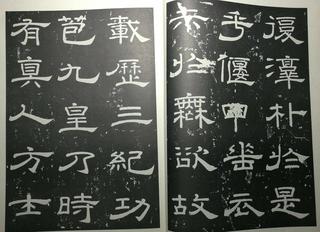 復淳朴於是
乎偃甲垂衣
於無欲故
載歷三紀功
苞九皇乃時
有真人方士